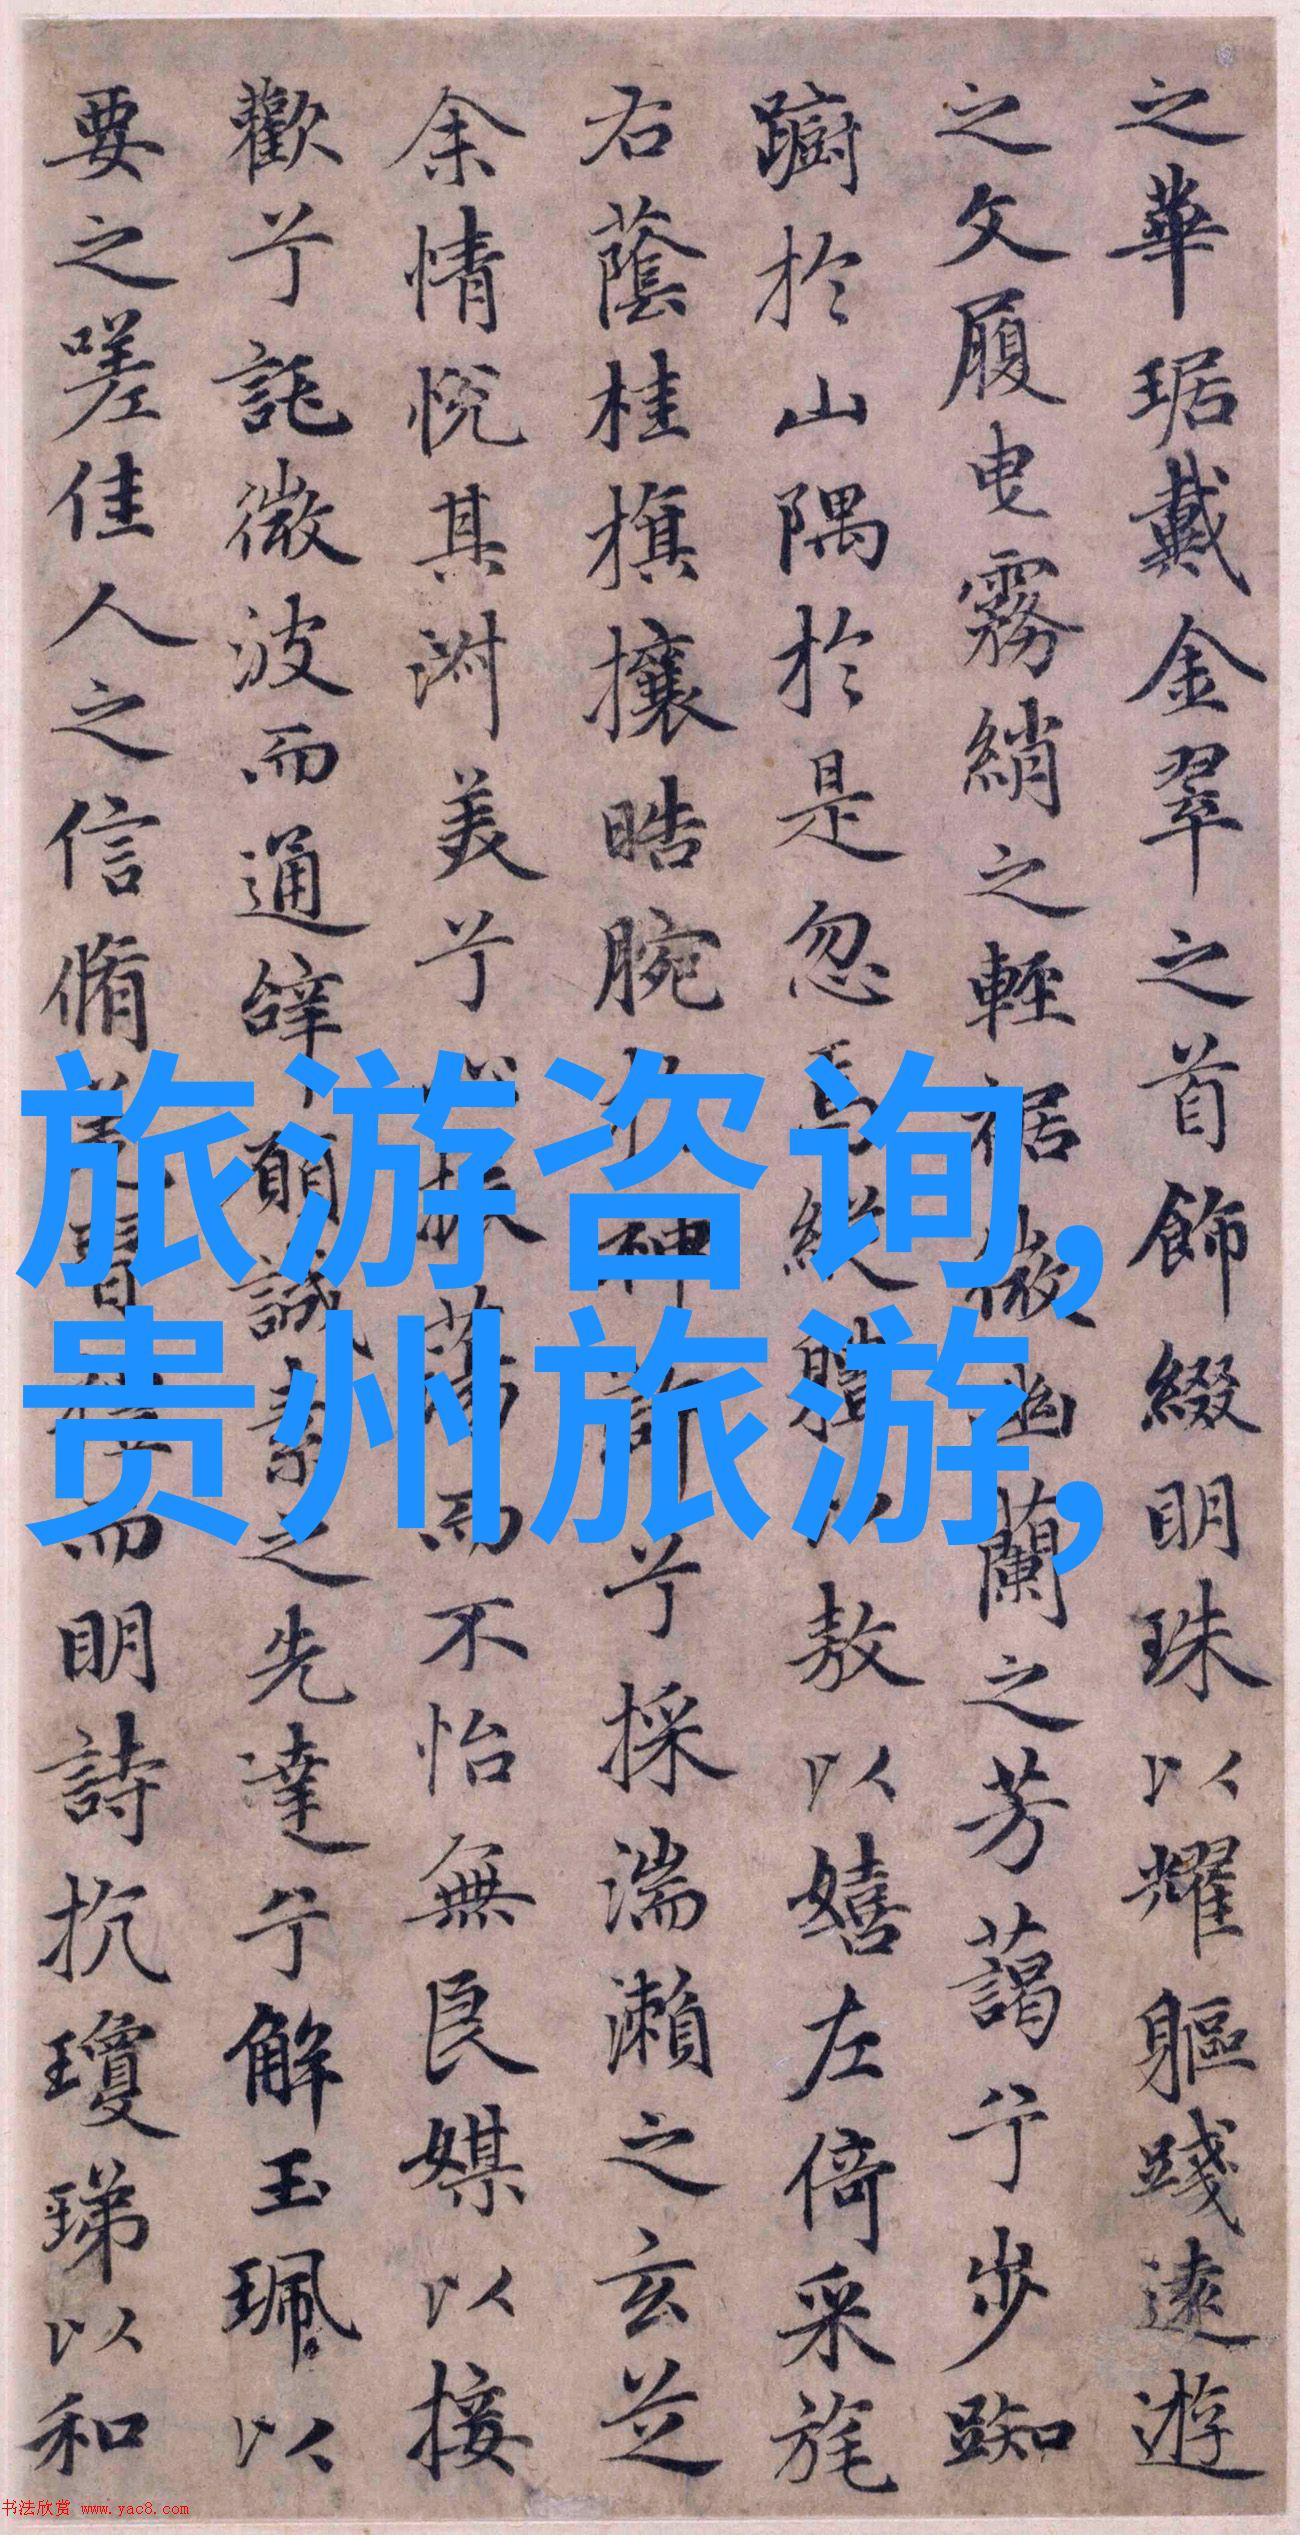 之華琚戴金翠之首飾綴明珠以耀軀踐遠遊
之文履曳霧綃之輕裾微幽蘭之芳藹兮步踟
躕於山隅於是忽焉縱體以敖以嬉左倚采旄
右蔭桂旗攘皓腕神兮採湍瀨之玄芝
余情悅其淑美兮振蕩而不怡無良媒以接
歡兮託微波而通辭願誠素之先達兮解玉珮以
要之嗟佳人之信脩而明詩抗瓊珶以和
旅游咨询,
贵州旅游,
书法欣赏 www.yac8.com